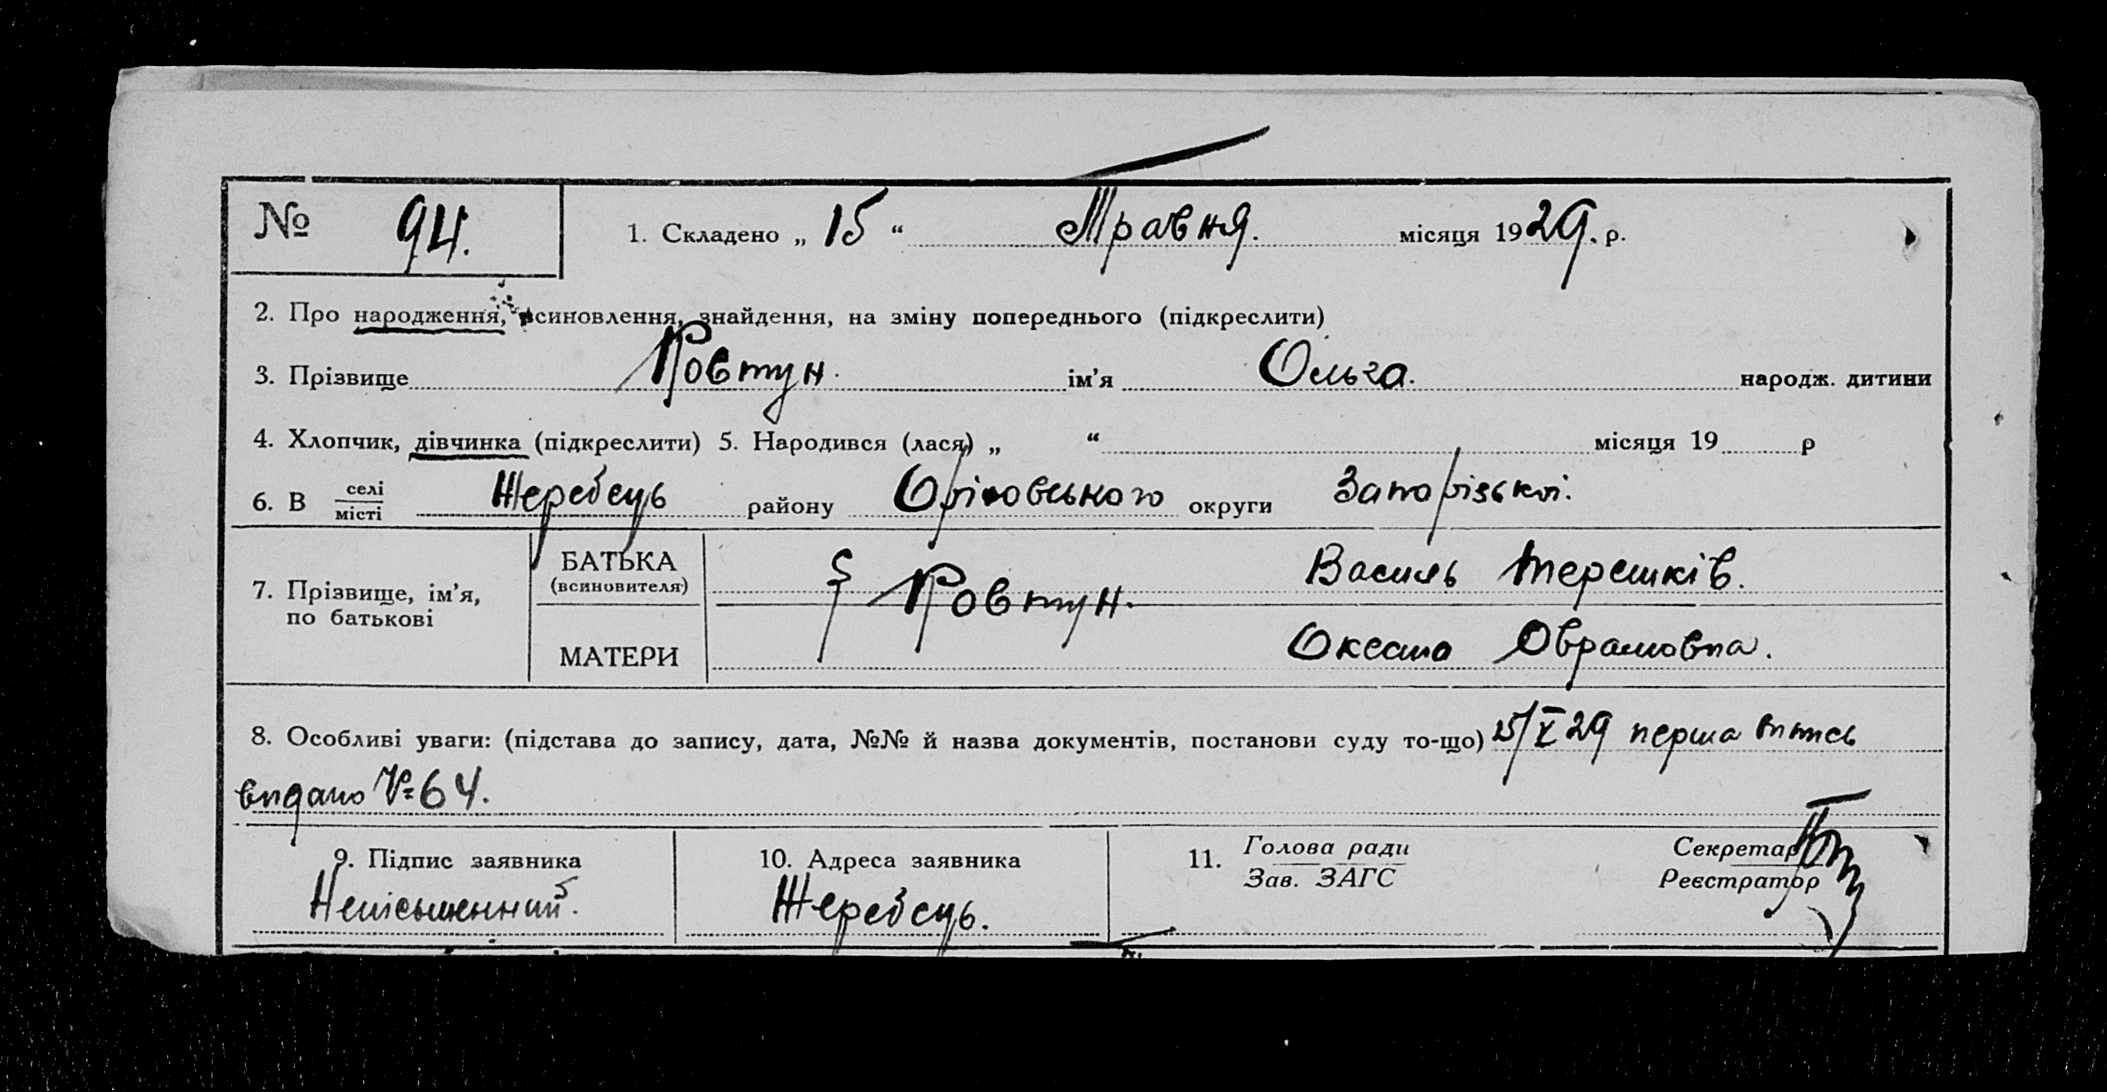 № 94. 1. Складено „ 15 “ Травня. місяця 1929. р.
2. Про народження, всиновлення, знайдення, на зміну попереднього (підкреслити)
3. Прізвище Ковтун. ім’я Ольга. народж. дитини
4. Хлопчик, дівчинка (підкреслити) 5. Народився (лася) „ “ місяця 19 р
6. В селі Жеребець району Оріховського округи Запорізької.
місті
7. Прізвище, ім’я,
по батькові
БАТЬКА
(всиновителя)
Ковтун. Василь Терешків.
МАТЕРИ Оксана Оврамовна.
8. Особливі уваги: (підстава до запису, дата, №№ й назва документів, постанови суду то-що) 15/V 29 перша
видано № 64.
9. Підпис заявника
Неписьменний.
10. Адреса заявника
Жеребець.
11. Голова ради
Зав. ЗАГС
Секретар
Реєстратор